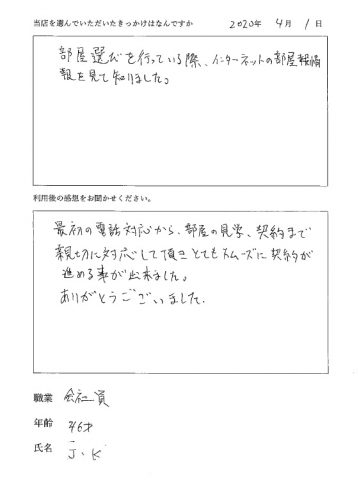 当店を選んでいただいたきっかけはなんですか　2020年 4月 1日
部屋選びを行っている際、インターネットの部屋報情
報を見て知りました。
利用後の感想をお聞かせください。
最初の電話対応から、部屋の見学、契約まで
親切に対応して頂きとてもスムーズに契約が
進める事が出来ました。
ありがとうございました.
職業 会社員
年齢 46才
氏名 J.K